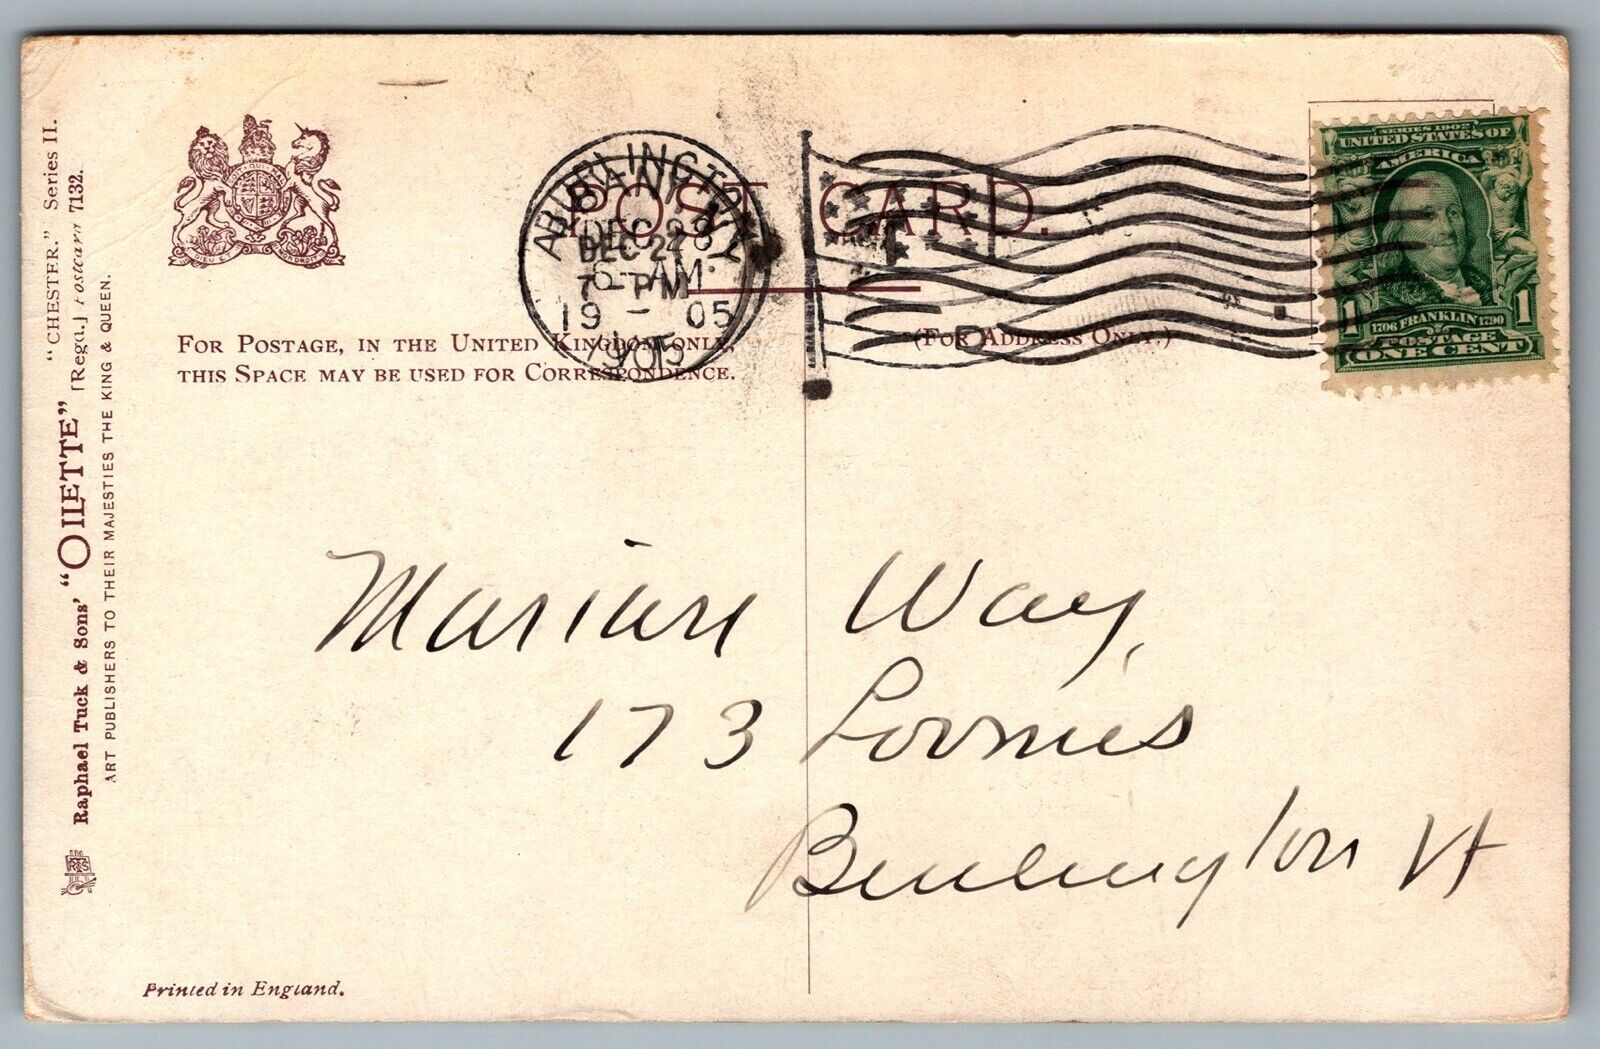 "CHESTER." Series II.
Raphael Tuck & Sons' "OILETTE" [Regd.] Postcard 7132.
ART PUBLISHERS TO THEIR MAJESTIES THE KING & QUEEN.
POST CARD.
BURLINGTON
ALBANY N.Y.
DEC 28
DEC 27
6 - AM
7 - PM
19 - 05
1905
FOR POSTAGE, IN THE UNITED KINGDOM ONLY,
THIS SPACE MAY BE USED FOR CORRESPONDENCE.
(FOR ADDRESS ONLY.)
SERIES 1902
UNITED STATES OF
AMERICA
1 1706 FRANKLIN 1790 1
POSTAGE
ONE CENT
Marian Way,
173 Loomis
Burlington Vt
Printed in England.